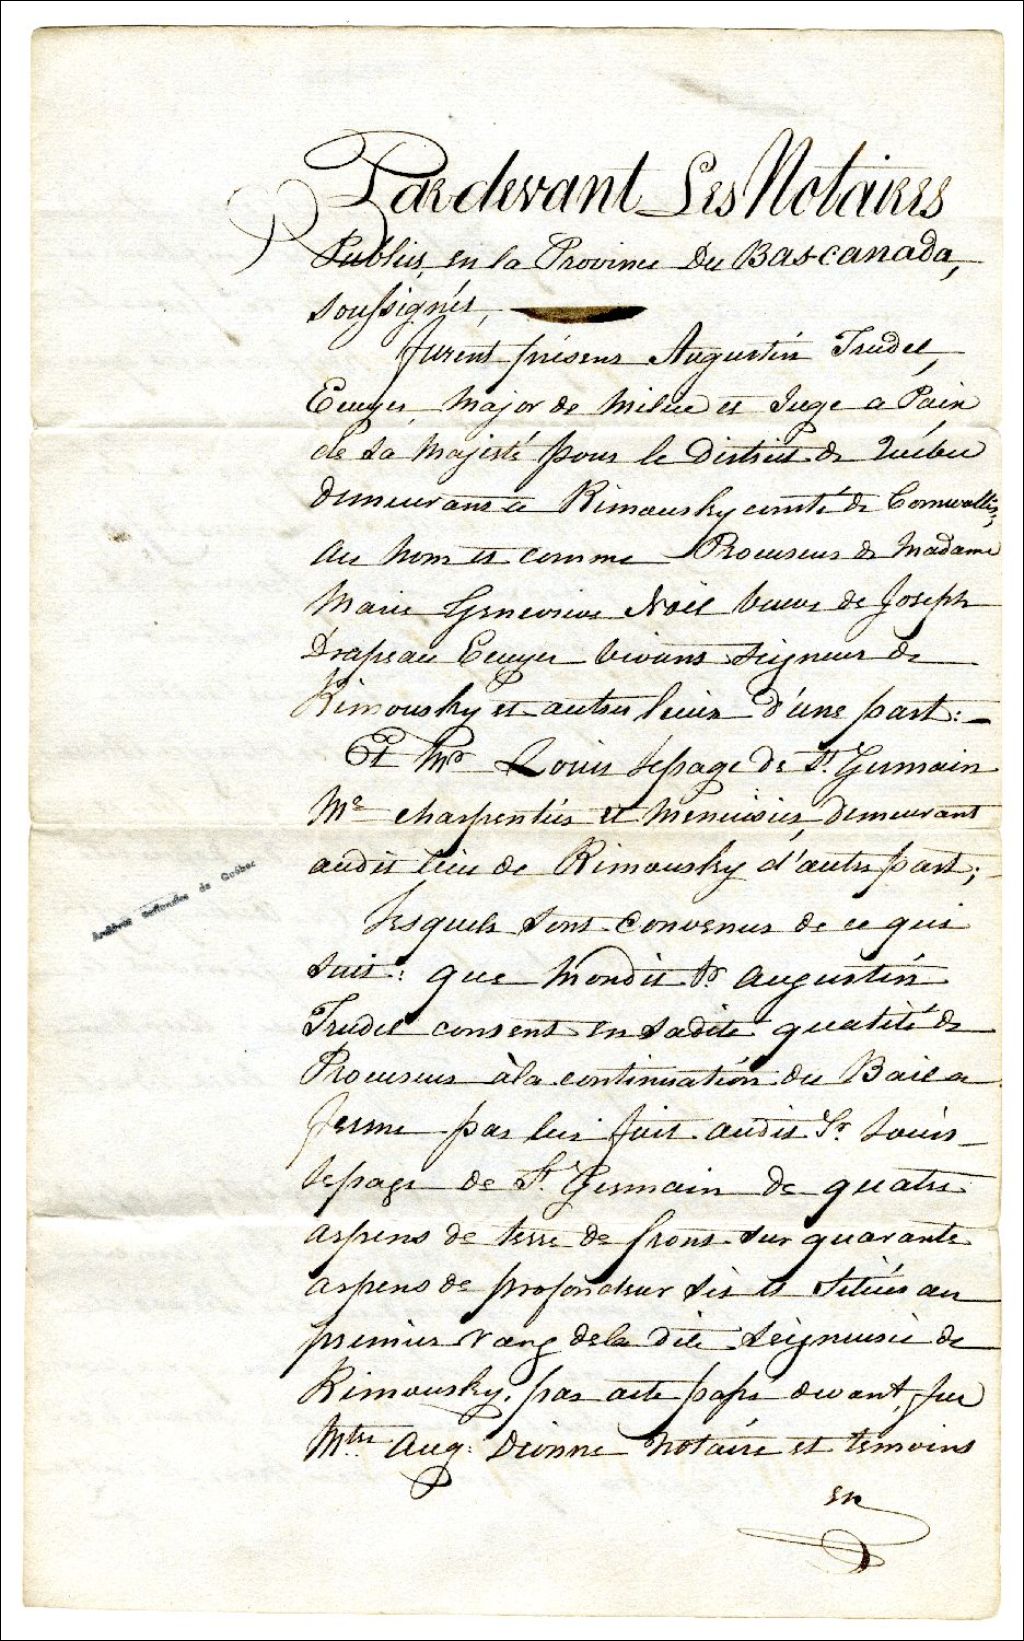 Pardevant Les Notaires
Publics, en la Province Du Bas-canada,
soussignés,
furent présens Augustin Trudel,
Ecuyer, Major de Milice et Juge a Paix
de Sa Majesté pour le District de Québec
demeurans a Rimousky comté de Cornwallis,
au nom et comme Procureur de Madame
Marie Genevieve Noël veuve de Joseph
Drapeau Ecuyer vivans Seigneur de
Rimousky et autres lieux d'une part: -
Et Mr Louis Lepage De St. Germain
Me charpentier et Menuisier, demeurant
audit lieu de Rimousky d'autre part;
Lesquels sont convenus de ce qui
suit: que Mondit Sr. Augustin
Trudel consent en sadite qualité de
Procureur à la continuation du Bail a
ferme par lui fait audit Sr. Louis
Lepage de St. Germain de quatre
arpens de terre de front sur quarante
arpens de profondeur sis et situés au
premier rang de la dite Seigneurie de
Rimousky, par acte passé devant, feu
Mtre Aug: Dionne Notaire et temoins
en
Archives nationales de Québec